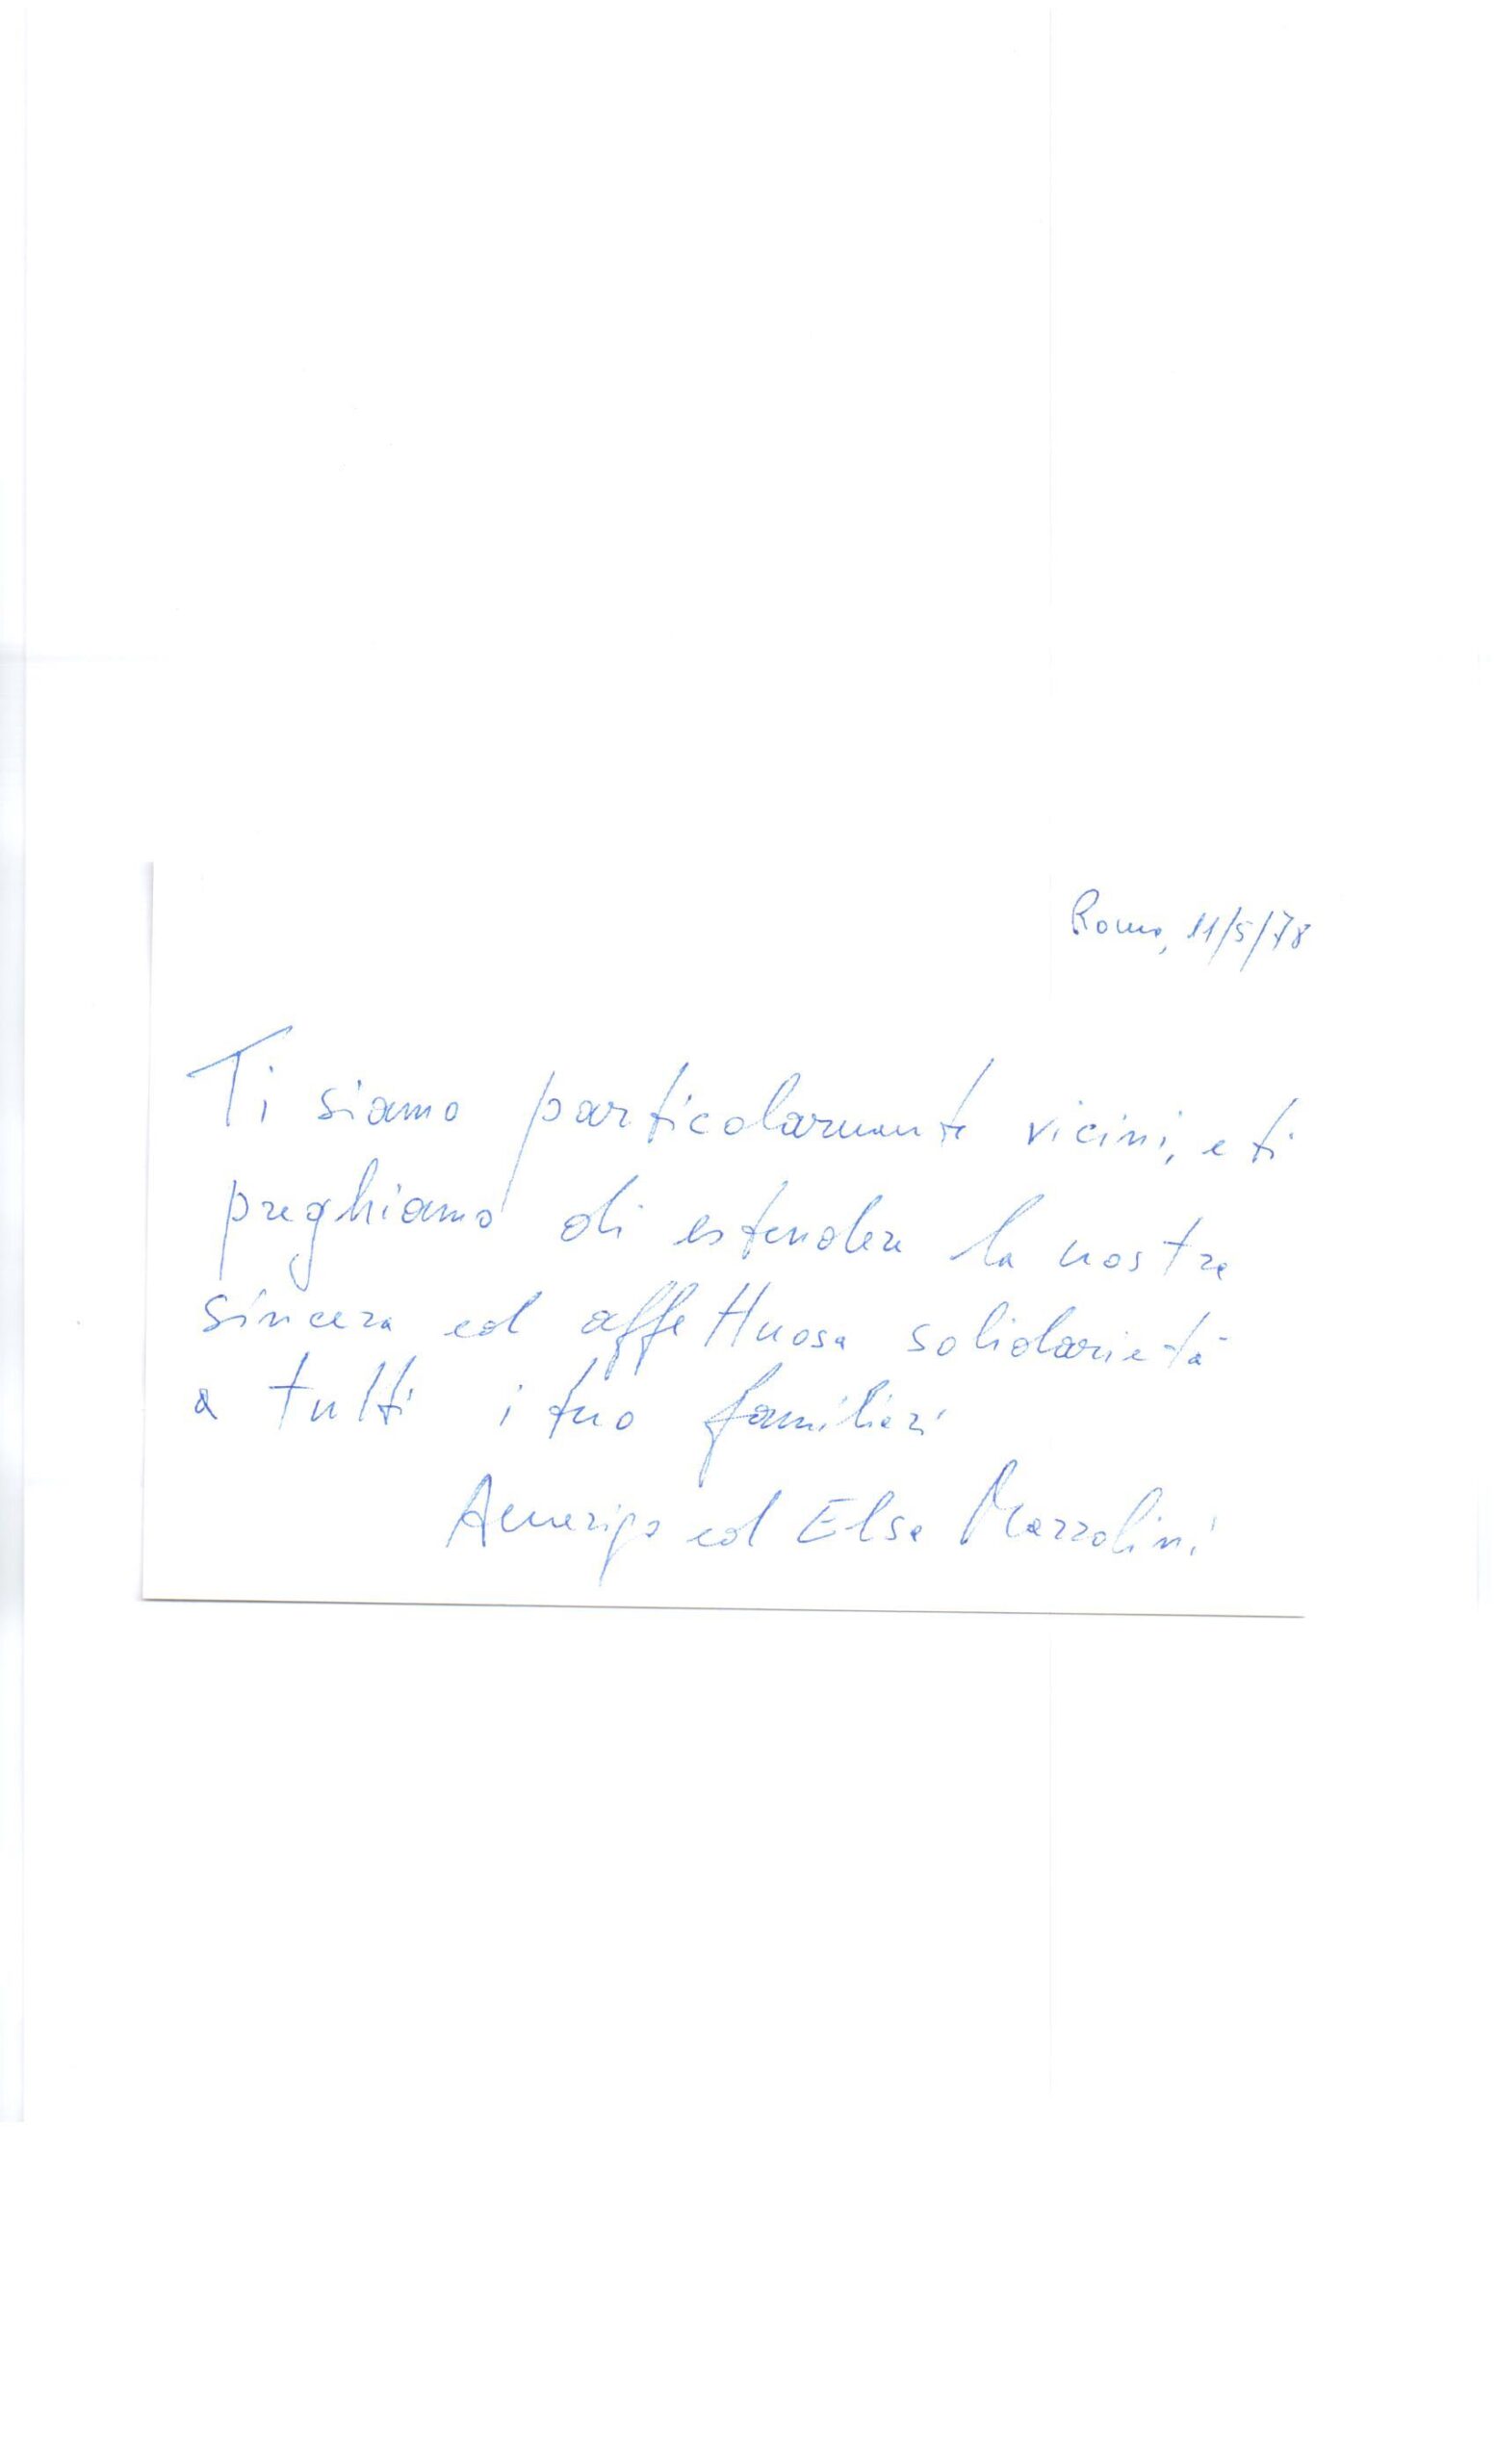 Roma, 11/5/78
Ti siamo particolarmente vicini, e ti
preghiamo di estendere la nostra
sincera ed affettuosa solidarietà
a tutti i tuo familiari
Amerigo ed Elsa Mazzolini